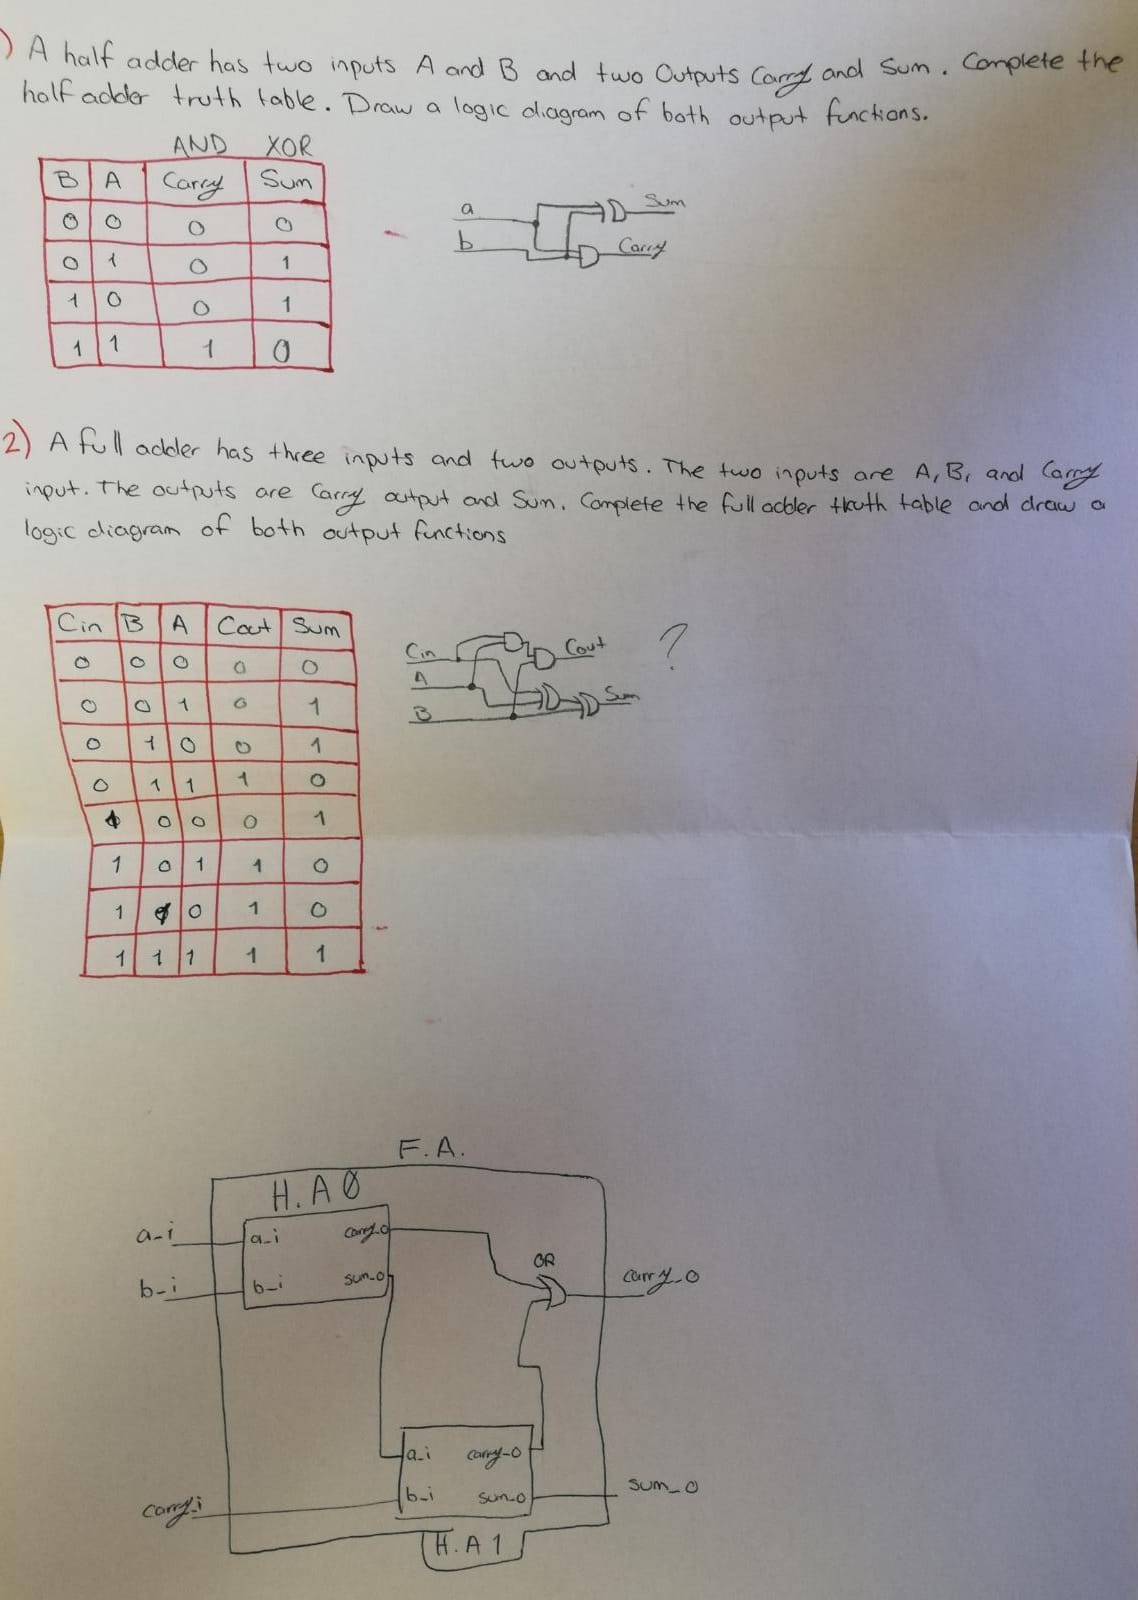 ) A half adder has two inputs A and B and two Outputs Carry and Sum. Complete the
half adder truth table. Draw a logic diagram of both output functions.
AND XOR
B A Carry Sum
0 0 0 0
0 1 0 1
1 0 0 1
1 1 1 0
a
b
Sum
Carry
2) A full adder has three inputs and two outputs. The two inputs are A, B, and Carry
input. The outputs are Carry output and Sum. Complete the full adder truth table and draw a
logic diagram of both output functions
Cin B A Cout Sum
0 0 0 0 0
0 0 1 0 1
0 1 0 0 1
0 1 1 1 0
1 0 0 0 1
1 0 1 1 0
1 1 0 1 0
1 1 1 1 1
Cin
A
B
Cout
Sum
?
F.A.
H.A0
a_i a_i carry_o
b_i b_i sum_o
OR
carry_o
a_i carry_o
carry_i b_i sum_o sum_o
H.A1